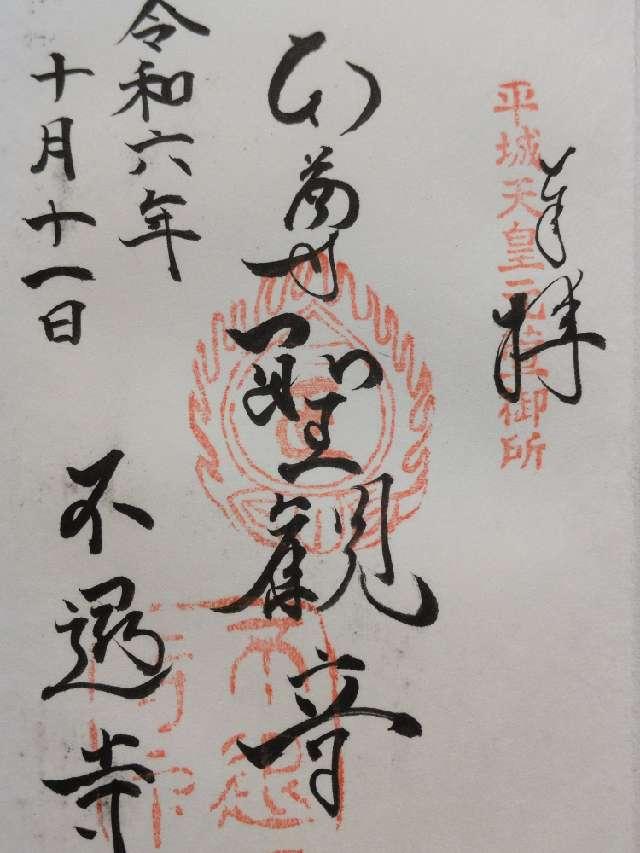 奉拝
平城天皇元萱御所
本尊聖観音
令和六年
十月十一日
不退寺